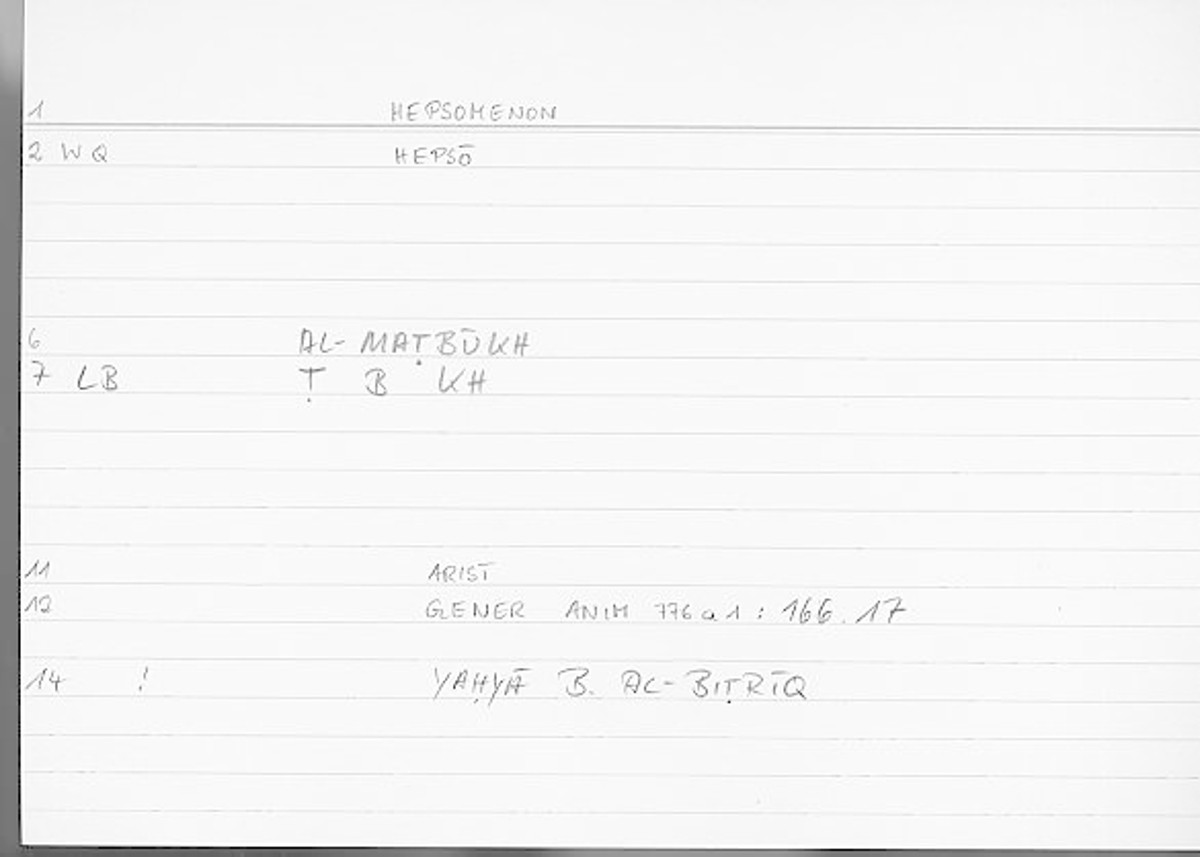 1 HEPSOMENON
2 WQ HEPSŌ
6 AL-MAṬBŪKH
7 LB Ṭ B KH
11 ARIST
12 GENER ANIM 776a1 : 166.17
14 ! YAḤYĀ B. AL-BIṬRĪQ